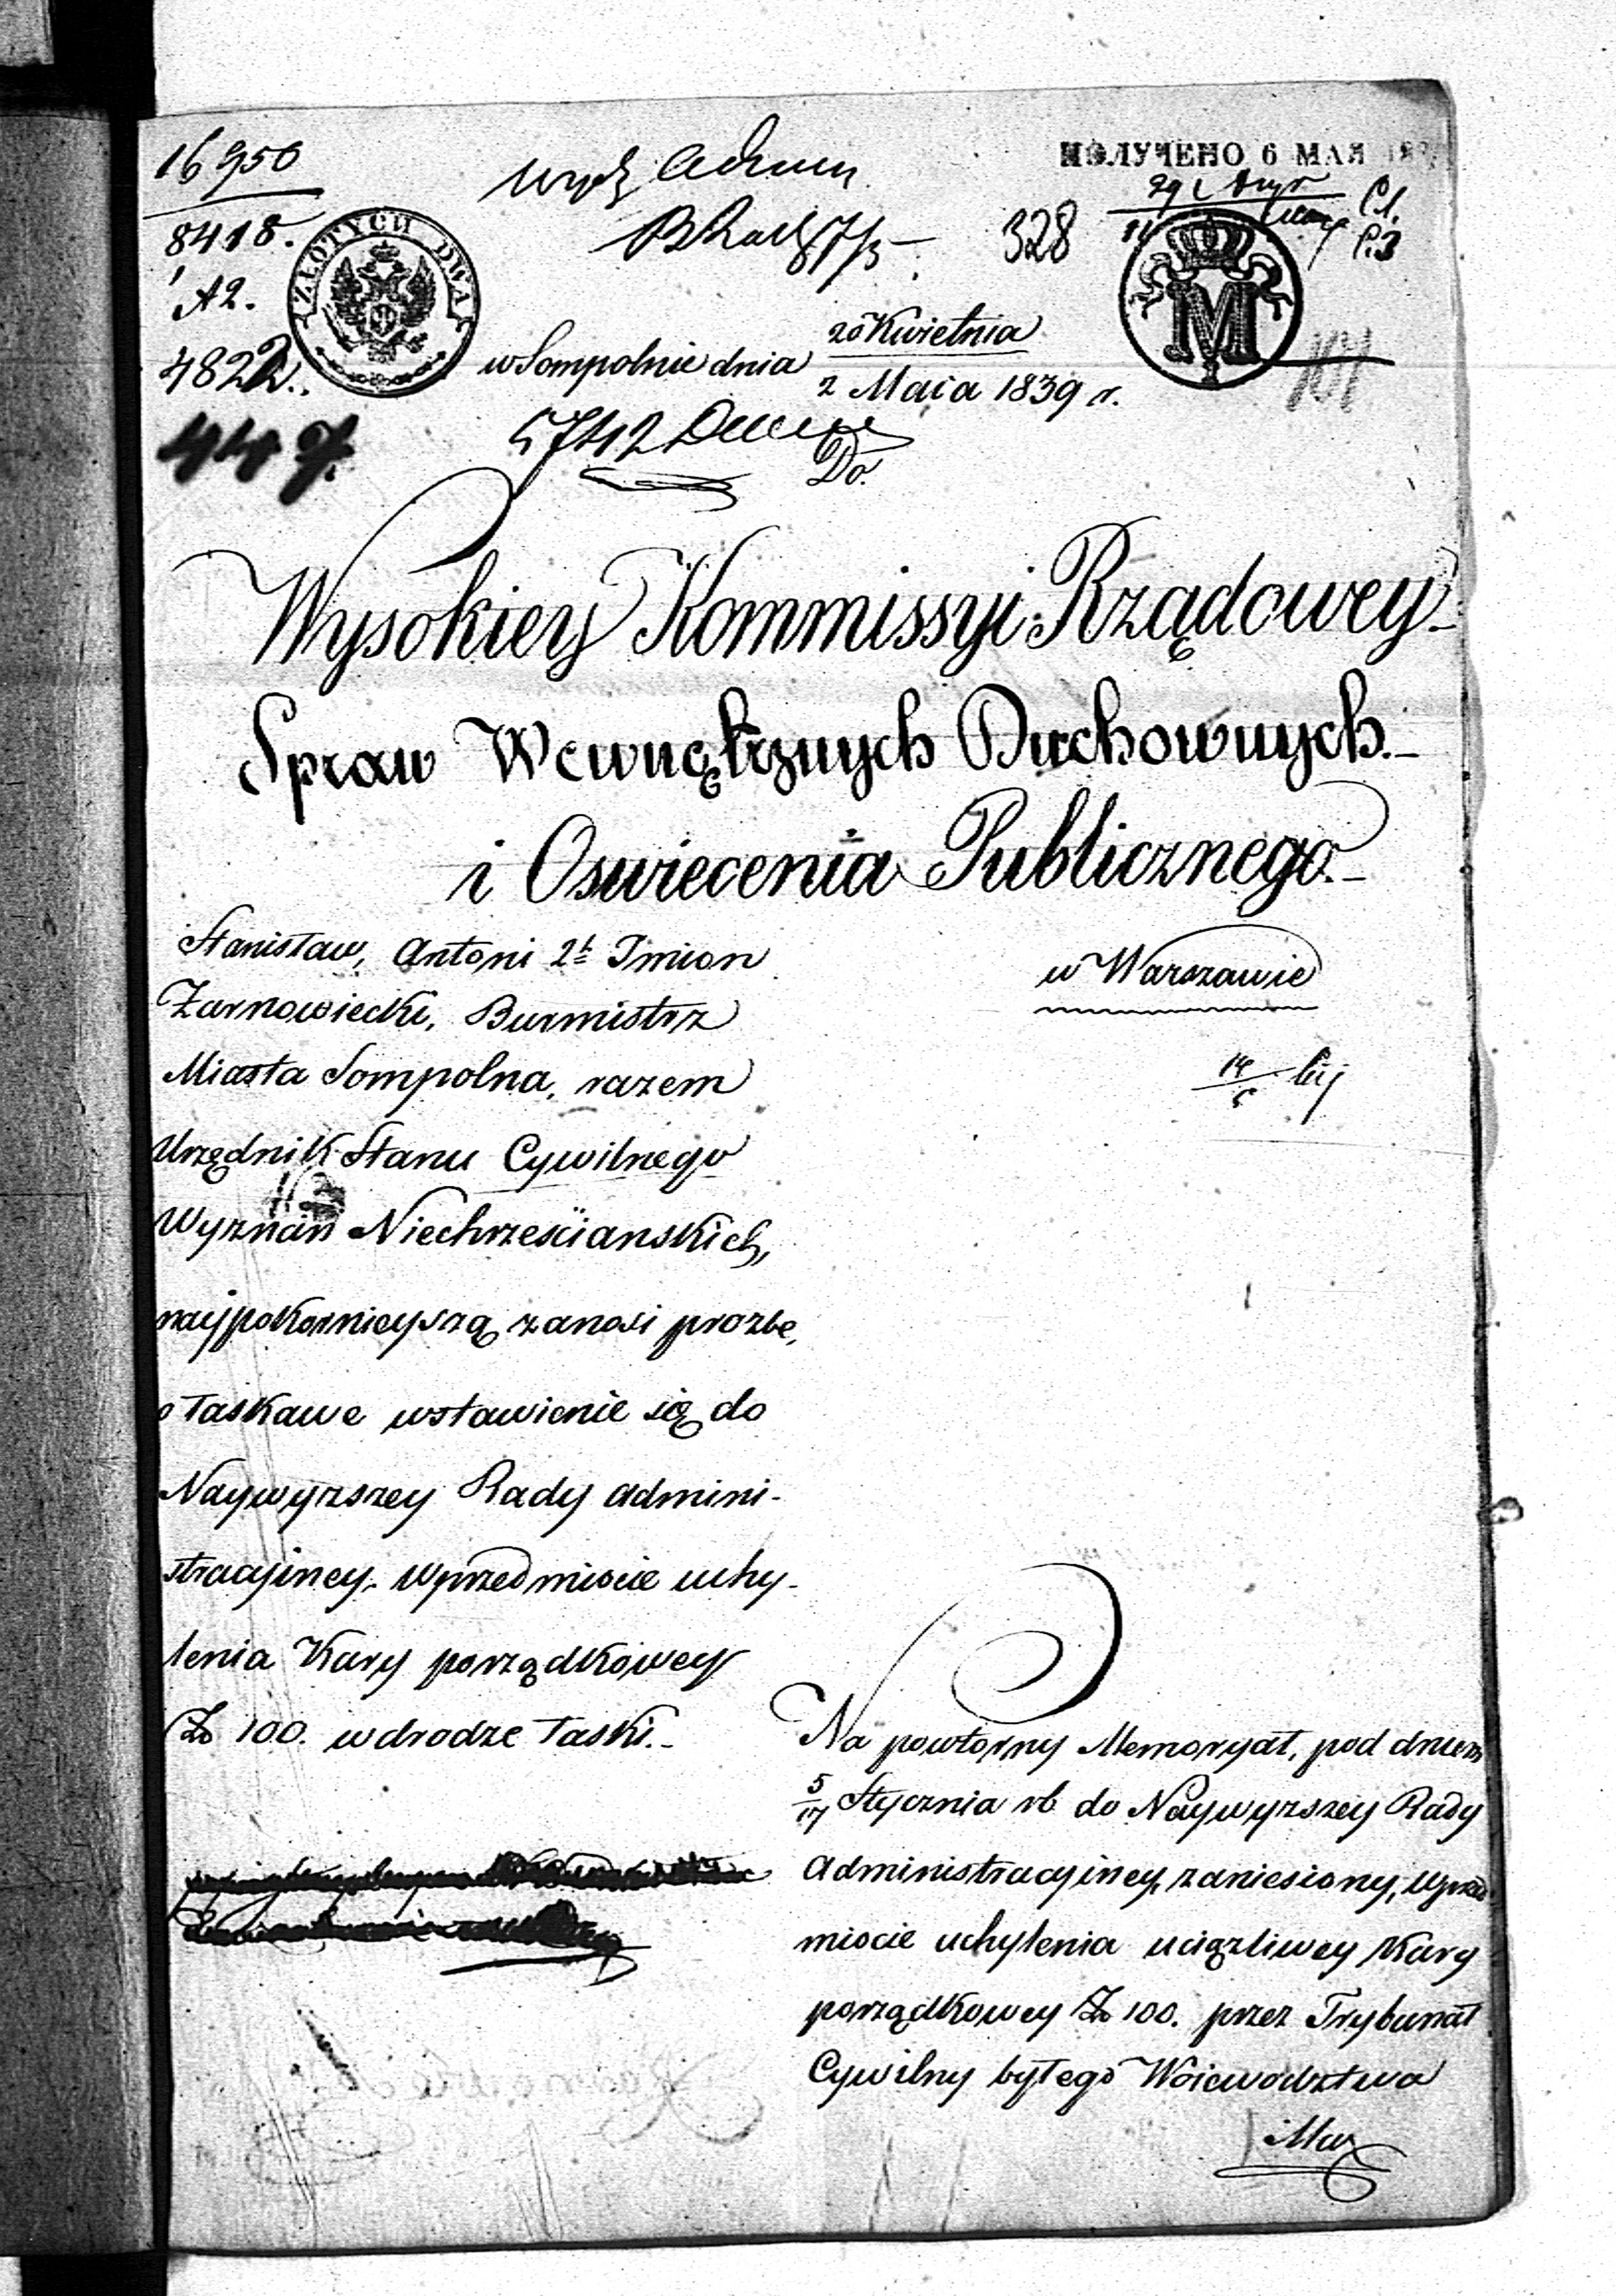 16950
8418.
A2.
4822.
ZŁOTYCH DWA
ПОЛУЧЕНО 6 МАЯ
328
M
w Sompolnie dnia 20 Kwietnia
2 Maia 1839 r.
5742
Do.
Wysokiey Kommissyi Rządowey
Spraw Wewnętrznych Duchownych.
i Oswiecenia Publicznego.
w Warszawie
Stanisław, Antoni 2ch Jmion
Żarnowiecki, Burmistrz
Miasta Sompolna, razem
Urzędnik Stanu Cywilnego
Wyznań Niechrześcianskich,
naypokornieyszą zanosi prozbe,
o łaskawe wstawienie się do
Naywyzszey Rady Admini-
stracyiney. w przedmiocie uchy-
lenia Kary porządkowey
Zł 100. w drodze łaski.
Na powtorny Memoryał, pod dniem
5/17 Stycznia rb do Naywyzszey Rady
Administracyiney, zaniesiony, w przed
miocie uchylenia uciązliwey Kary
porządkowey Zł 100. przez Trybunał
Cywilny byłego Woiewodztwa
Maz